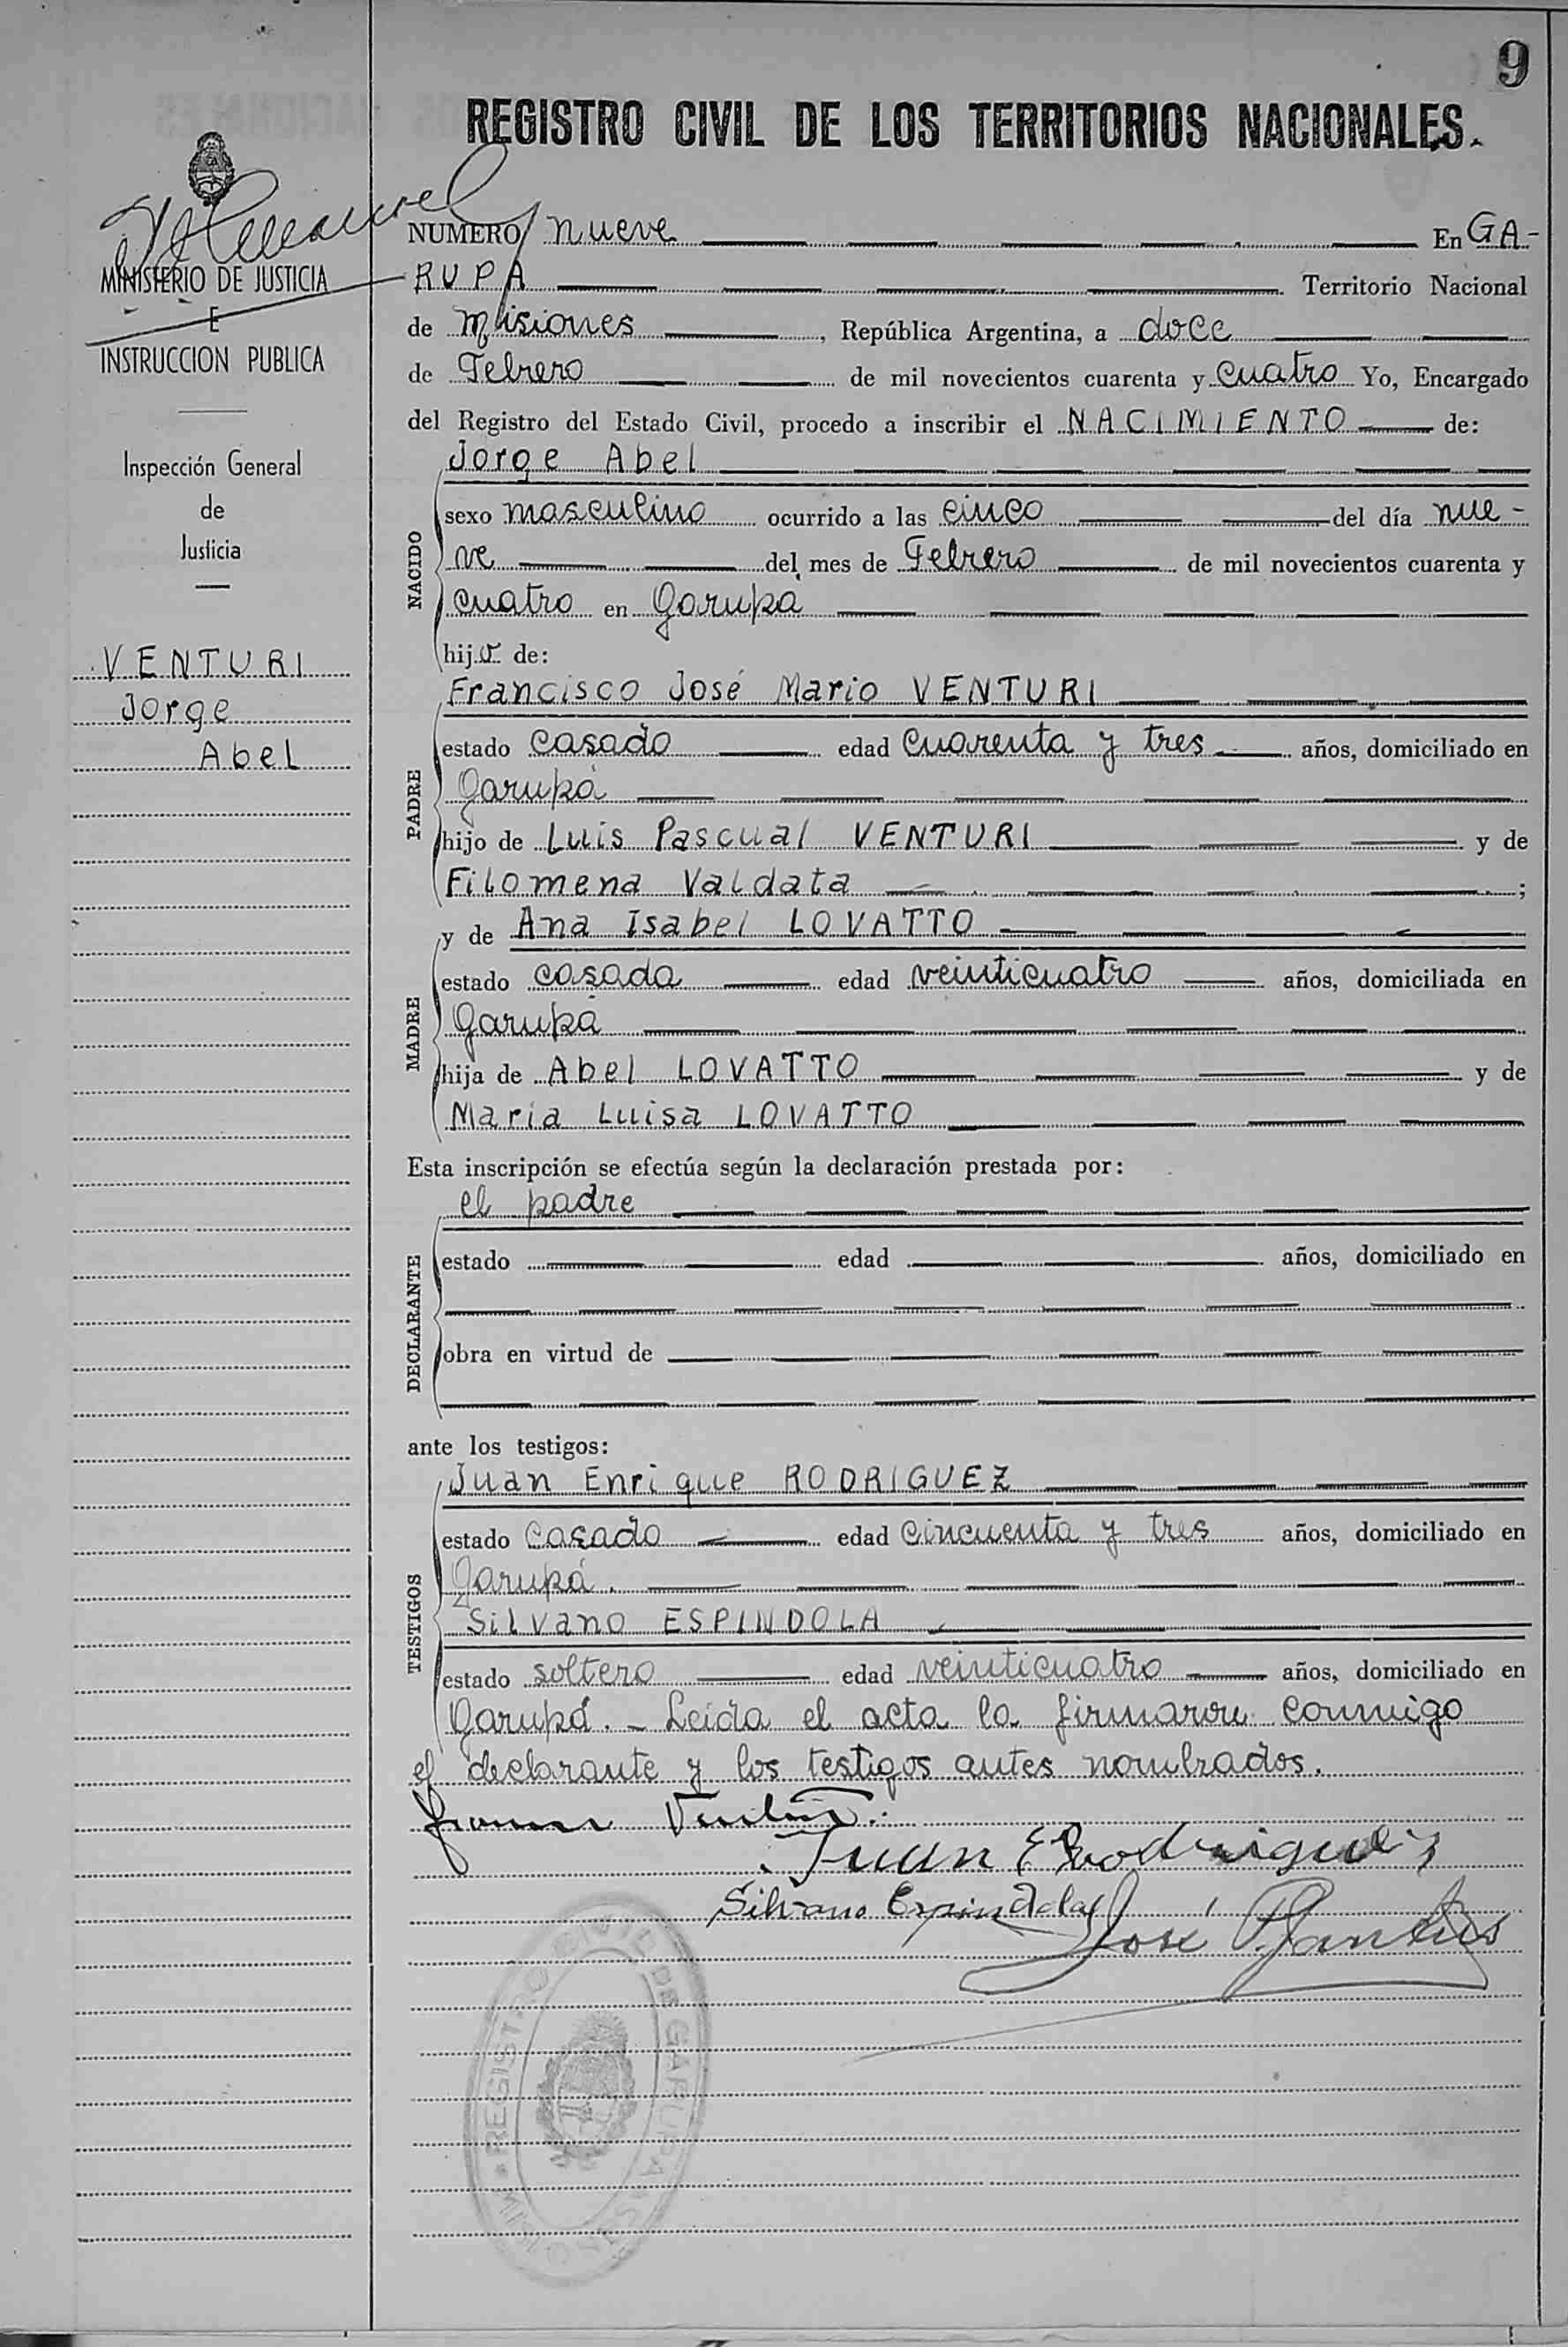 9
REGISTRO CIVIL DE LOS TERRITORIOS NACIONALES.
MINISTERIO DE JUSTICIA
E
INSTRUCCION PUBLICA
Inspección General
de
Justicia
VENTURI
Jorge
Abel
NUMERO nueve En GA-
RUPA Territorio Nacional
de Misiones, República Argentina, a doce
de Febrero de mil novecientos cuarenta y cuatro Yo, Encargado
del Registro del Estado Civil, procedo a inscribir el NACIMIENTO de:
Jorge Abel
NACIDO
sexo masculino ocurrido a las cinco del día nue-
ve del mes de Febrero de mil novecientos cuarenta y
cuatro en Garupá
hijo de:
Francisco José Mario VENTURI
PADRE
estado casado edad cuarenta y tres años, domiciliado en
Garupá
hijo de Luis Pascual VENTURI y de
Filomena Valdata ;
y de Ana Isabel LOVATTO
MADRE
estado casada edad veinticuatro años, domiciliada en
Garupá
hija de Abel LOVATTO y de
María Luisa LOVATTO
Esta inscripción se efectúa según la declaración prestada por:
el padre
DECLARANTE
estado edad años, domiciliado en
obra en virtud de
ante los testigos:
Juan Enrique RODRIGUEZ
TESTIGOS
estado casado edad cincuenta y tres años, domiciliado en
Garupá.
Silvano ESPINDOLA
estado soltero edad veinticuatro años, domiciliado en
Garupá. - Leída el acta la firmaron conmigo
el declarante y los testigos antes nombrados.
Venturi
Juan E Rodrigues
Silvano Espindola
José
REGISTRO CIVIL DE GARUPA
MISIONES